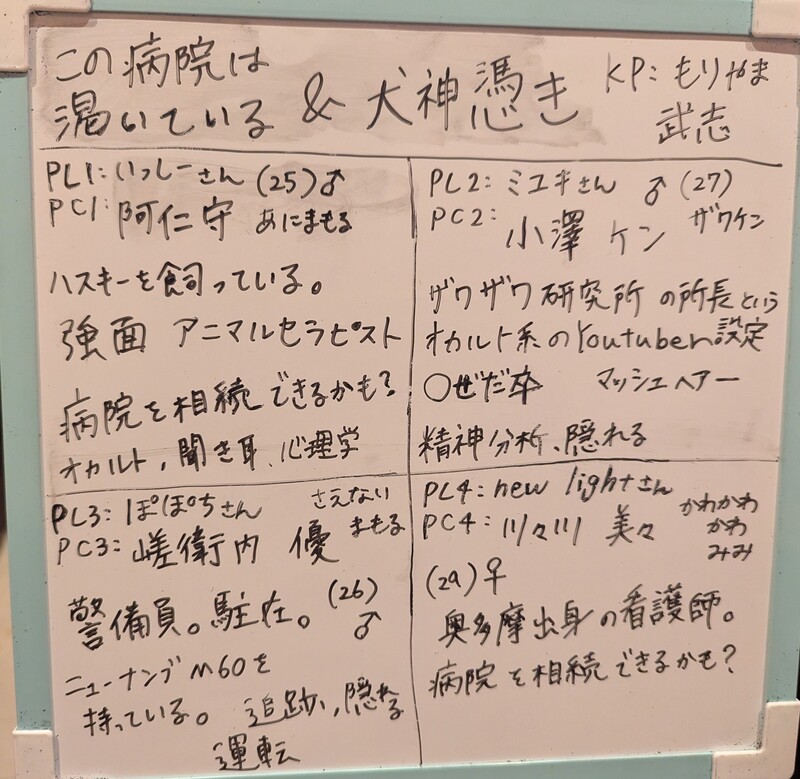 この病院は
渇いている & 犬神憑き
KP: もりやま
武志
PL1: いっしーさん (25)♂
PC1: 阿仁守 あにまもる
ハスキーを飼っている。
強面 アニマルセラピスト
病院を相続できるかも?
オカルト, 聞き耳、心理学
PL2: ミユキさん ♂ (27)
PC2: 小澤 ケン ザワケン
ザワザワ研究所の所長という
オカルト系のYoutuber設定
○ぜだ卒 マッシュヘアー
精神分析、隠れる
PL3: ぽぽちさん
PC3: 嵯衛内 優
さえない
まもる
(26)
♂
警備員。駐在。
ニューナンブM60を
持っている。 追跡, 隠れる
運転
PL4: new lightさん
PC4: 川々川 美々
かわかわ
かわ
みみ
(29)♀
奥多摩出身の看護師。
病院を相続できるかも?